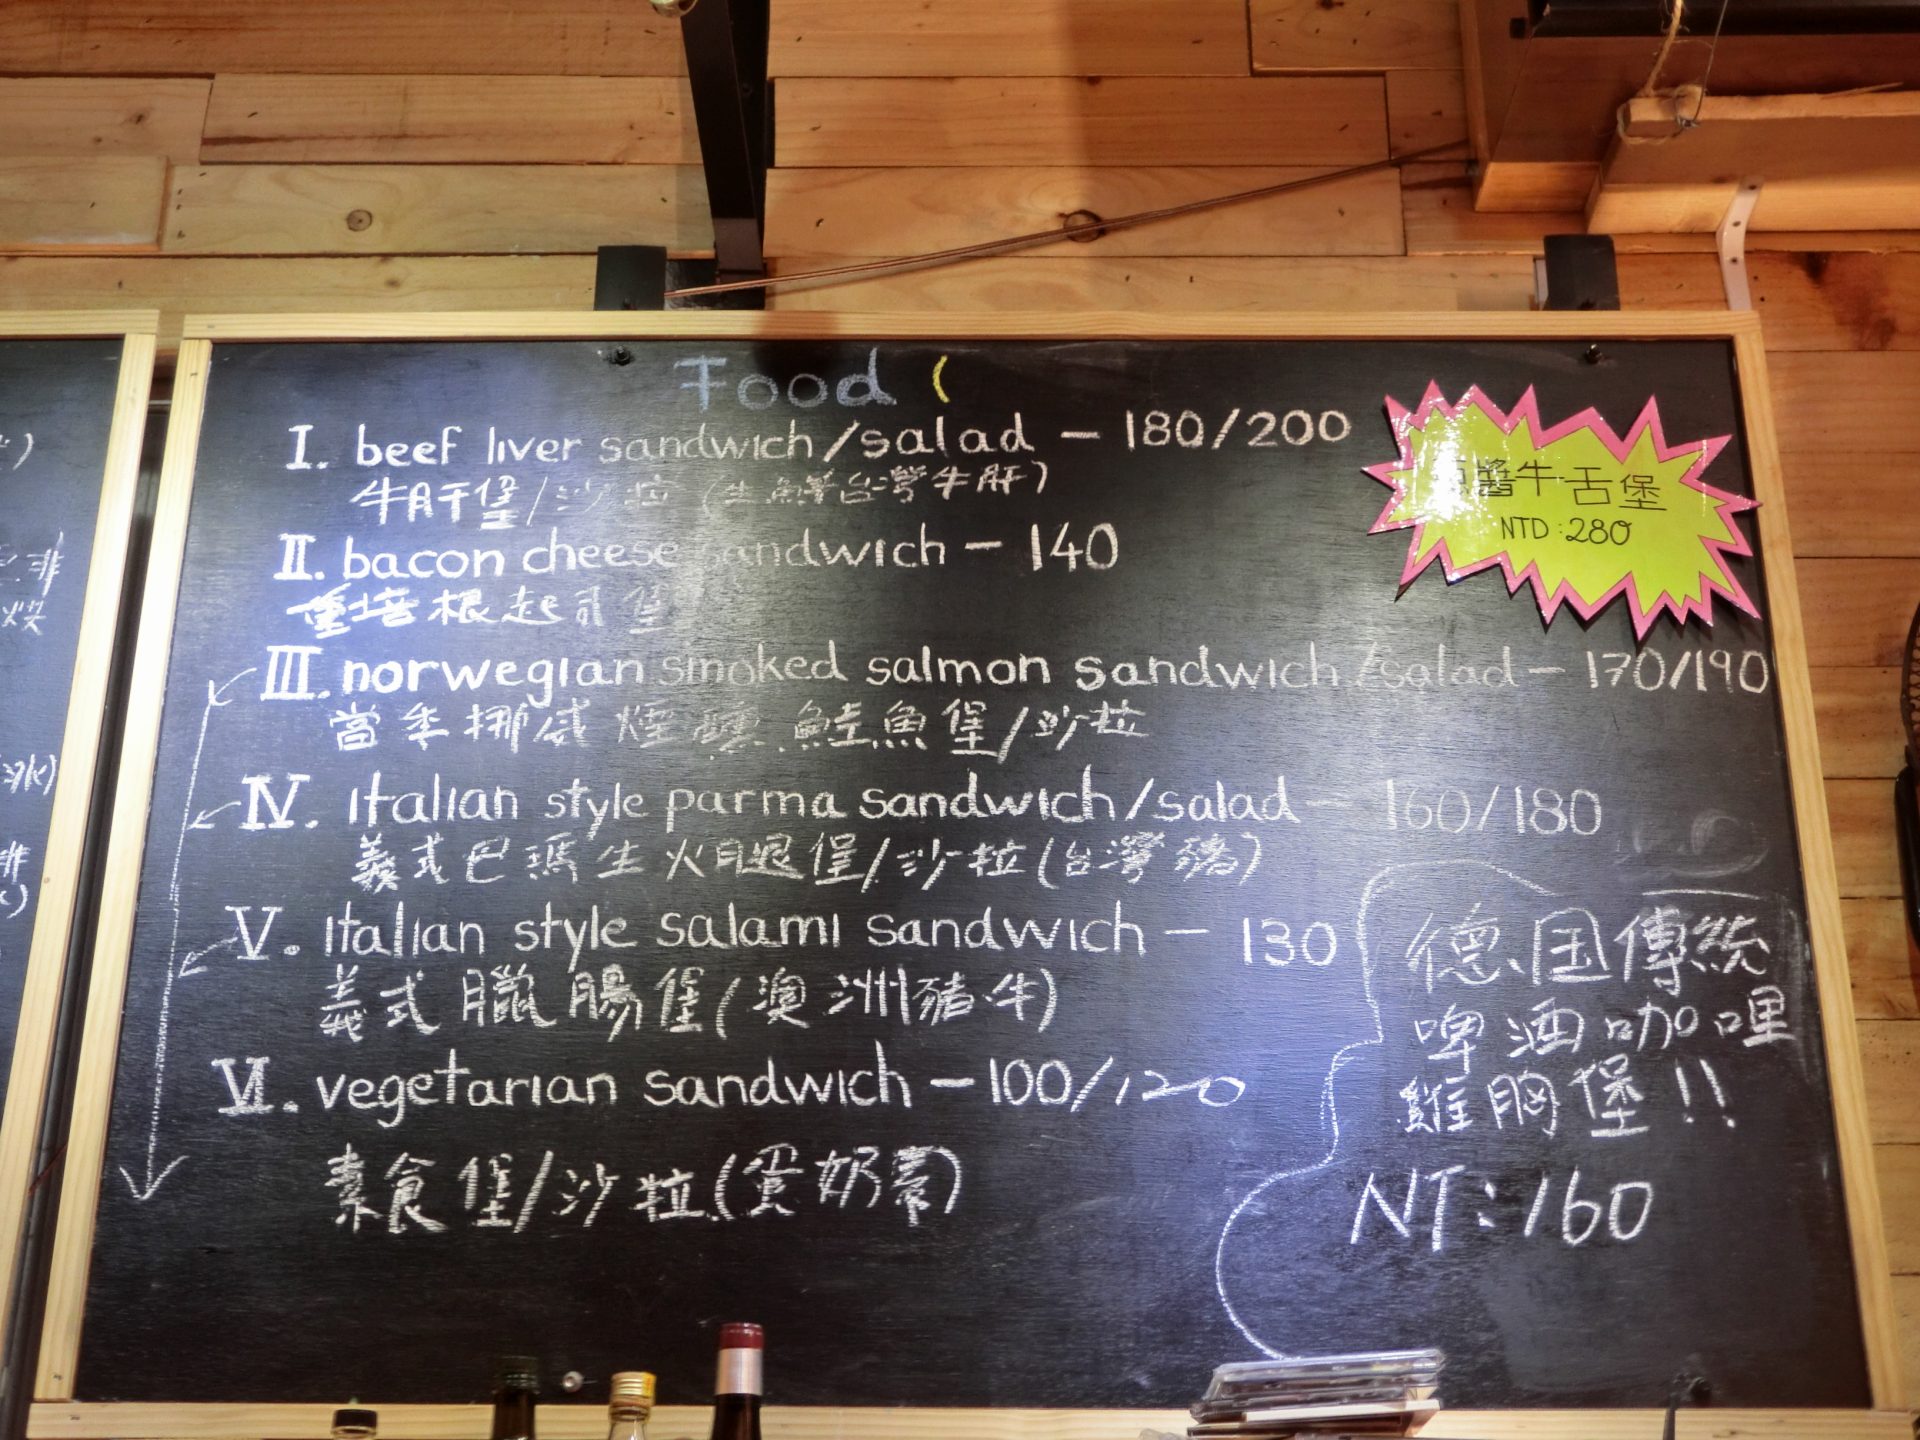 Food (
I. beef liver sandwich/salad - 180/200
牛肝堡/沙拉 (生鮮台灣牛肝)
II. bacon cheese sandwich - 140
培根起司堡
III. norwegian smoked salmon sandwich/salad - 170/190
當年挪威煙燻鮭魚堡/沙拉
IV. italian style parma sandwich/salad - 160/180
義式巴瑪生火腿堡/沙拉(台灣豬)
V. italian style salami sandwich - 130
義式臘腸堡(澳洲豬.牛)
VI. vegetarian sandwich - 100/120
素食堡/沙拉(蛋奶素)
醬牛舌堡
NTD:280
德国傳統
啤酒咖哩
雞胸堡!!
NT:160